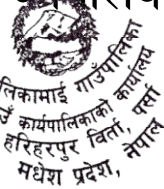 लिकामाई गाउँपालिका
उँ कार्यपालिकाको कार्यालय
हरिहरपुर विर्ता, पर्सा
मधेश प्रदेश, नेपाल